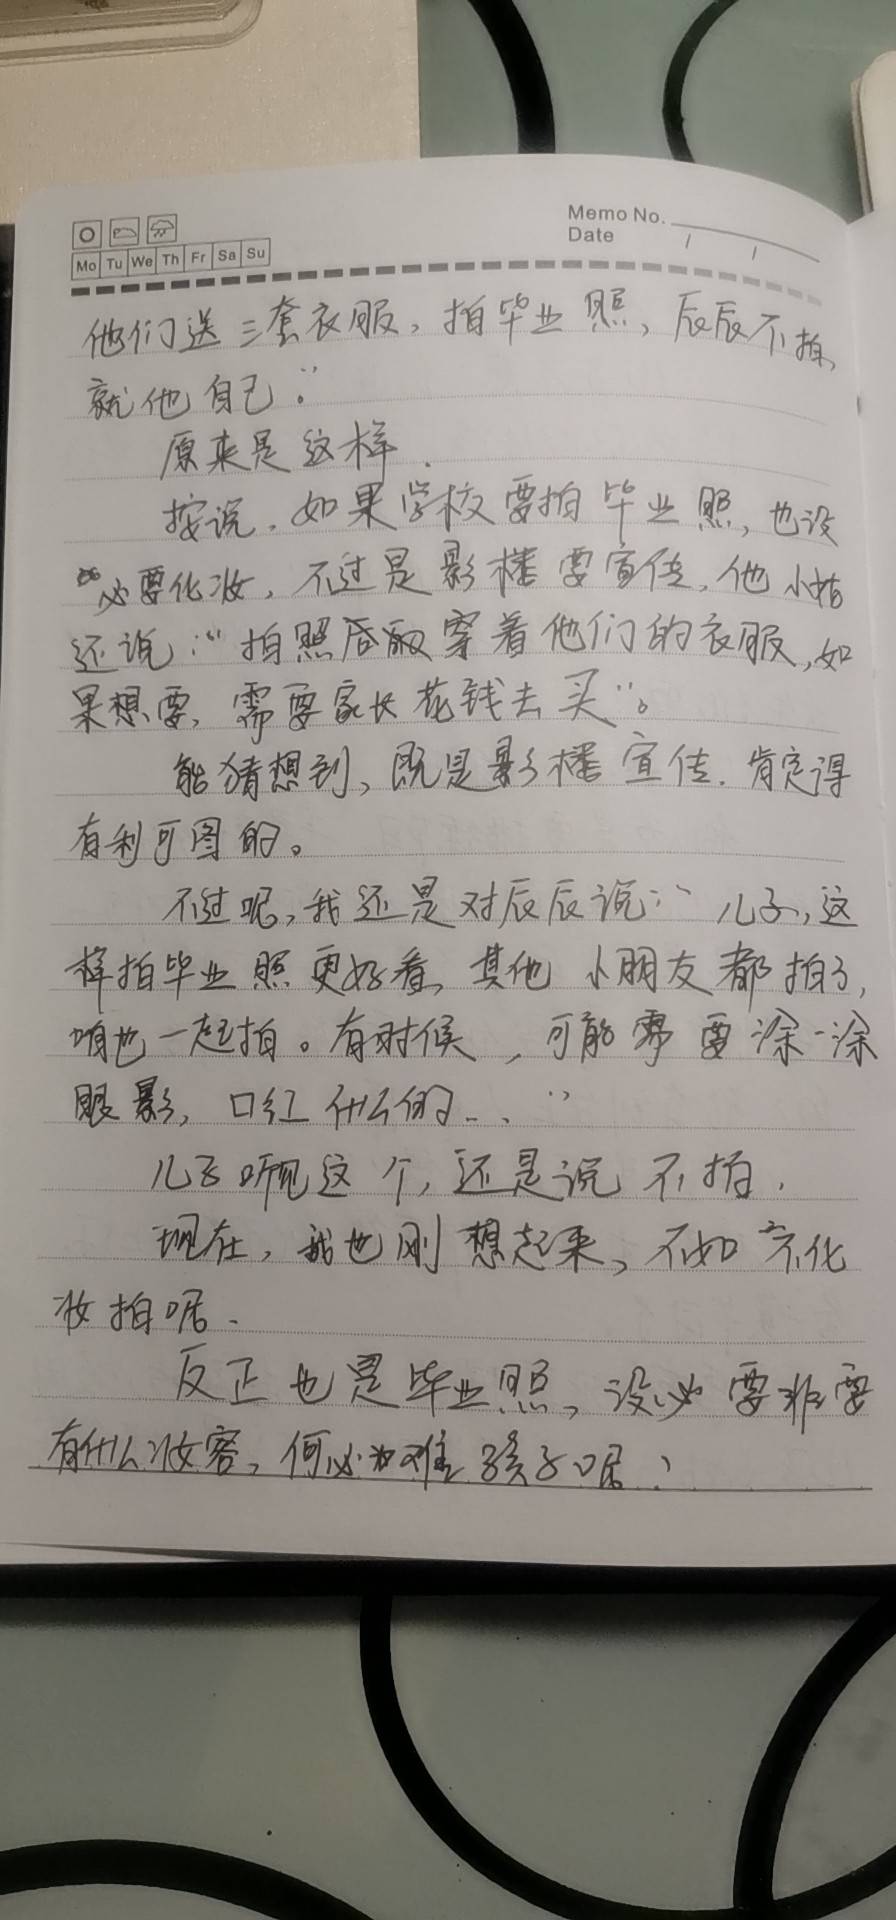 Memo No.
Date / /
Mo Tu We Th Fr Sa Su
他们送三套衣服，拍毕业照，辰辰不拍，
就他自己。”
原来是这样．
按说，如果学校要拍毕业照，也没
必要化妆，不过是影楼要宣传，他小姑
还说：“拍照后面穿着他们的衣服，如
果想要，需要家长花钱去买”。
能猜想到，既是影楼宣传．肯定得
有利可图的。
不过呢，我还是对辰辰说：“儿子，这
样拍毕业照更好看，其他小朋友都拍了，
咱也一起拍。有时候，可能需要涂一涂
眼影，口红什么的...”
儿子听见这个，还是说不拍．
现在，我也刚想起来，不如不化
妆拍呢．
反正也是毕业照，没必要非要
有什么妆容，何必为难孩子呢？